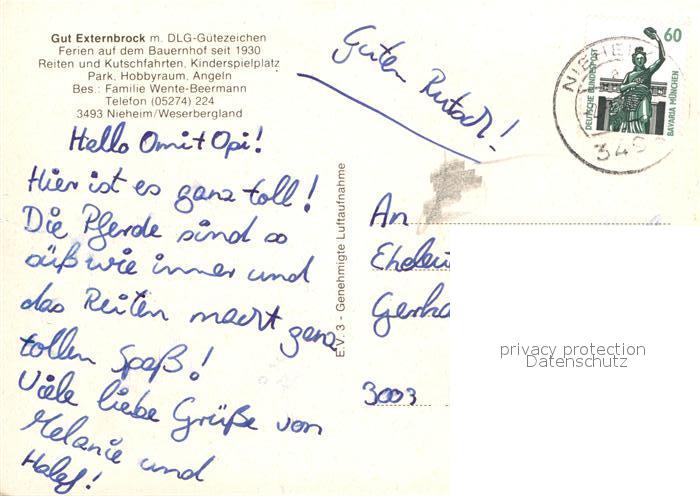 Gut Externbrock m. DLG-Gütezeichen
Ferien auf dem Bauernhof seit 1930
Reiten und Kutschfahrten, Kinderspielplatz
Park, Hobbyraum, Angeln
Bes.: Familie Wente-Beermann
Telefon (05274) 224
3493 Nieheim/Weserbergland
Guten Rutsch!
60
DEUTSCHE BUNDESPOST
BAVARIA MÜNCHEN
349
Hallo Omi + Opi!
Hier ist es ganz toll!
Die Pferde sind so
süß wie immer und
das Reiten macht ganz
tollen Spaß!
Viele liebe Grüße von
Melanie und
E.V. 3 - Genehmigte Luftaufnahme
An
Eheleu
Gerha
3003
privacy protection
Datenschutz